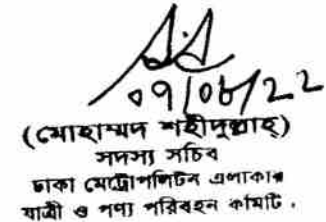 ০৭/০৮/22
(মোহাম্মদ শহীদুল্লাহ)
সদস্য সচিব
ঢাকা মেট্রোপলিটন এলাকার
যাত্রী ও পণ্য পরিবহন কমিটি.